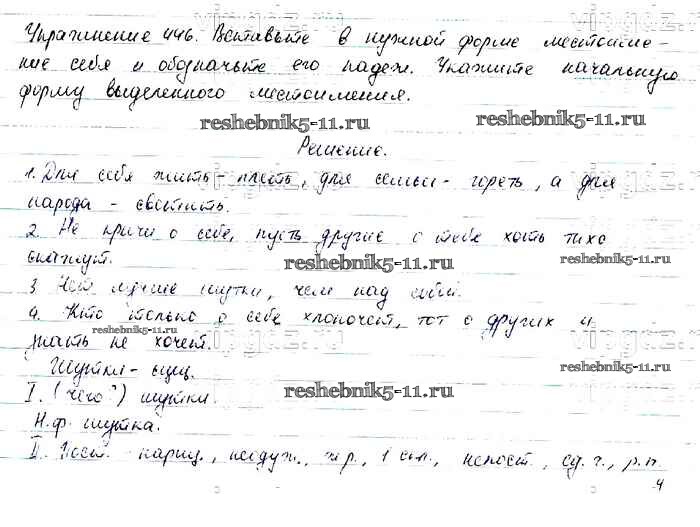 Упражнение 446. Вставьте в нужной форме местоиме-
ние себя и обозначьте его падеж. Укажите начальную
форму выделенного местоимения.
reshebnik5-11.ru
reshebnik5-11.ru
Решение.
1. Для себя жить - тлеть, для семьи - гореть, а для
народа - светить.
2. Не кричи о себе, пусть другие о тебе хоть тихо
скажут.
reshebnik5-11.ru
reshebnik5-11.ru
3. Нет лучше шутки, чем над собой.
4. Кто только о себе хлопочет, тот о других и
знать не хочет.
reshebnik5-11.ru
Шутки - сущ.
reshebnik5-11.ru
I. (чего?) шутки.
reshebnik5-11.ru
Н.ф. шутка.
II. Пост. нариц., неодуш., ж.р., 1 скл., непост., ед.ч., р.п.
4